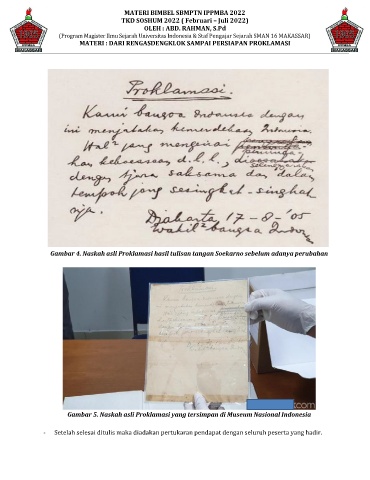 MATERI HIMBEL SBMPTN IPPMBA 2022
TKD SOSHUM 2022 ( Februari – Juli 2022)
OLEH : ABD. RAHMAN, S.Pd
(Program Magister Ilmu Sejarah Universitas Indonesia & Staf Pengajar Sejarah SMAN 16 MAKASSAR)
MATERI : DARI RENGASDENGKLOK SAMPAI PERSIAPAN PROKLAMASI
Proklamasi.
Kami bangsa Indonesia dengan
ini menjatakan kemerdekaan Indonesia.
Hal² jang mengenai
kekoeasaan d.l.l.,
dengan tjara saksama dan dalam
tempoh jang sesingkat-singkat
nja.
Djakarta 17-8-'05
Wakil² bangsa Indon
Gambar 4. Naskah asli Proklamasi hasil tulisan tangan Soekarno sebelum adanya perubahan
com
Gambar 5. Naskah asli Proklamasi yang tersimpan di Museum Nasional Indonesia
- Setelah selesai ditulis maka diadakan pertukaran pendapat dengan seluruh peserta yang hadir.